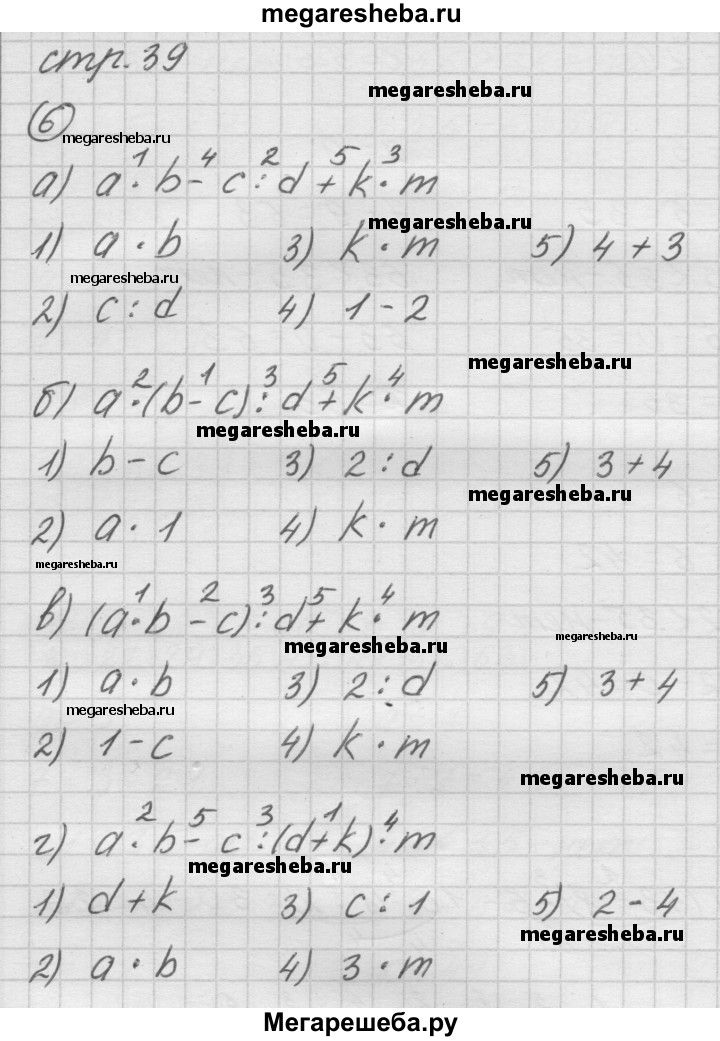 megaresheba.ru
стр. 39
megaresheba.ru
6
megaresheba.ru
1 4 2 5 3
а) a · b - c : d + k · m
megaresheba.ru
1) a · b 3) k · m 5) 4 + 3
megaresheba.ru
2) c : d 4) 1 - 2
megaresheba.ru
2 1 3 5 4
б) a · (b - c) : d + k · m
megaresheba.ru
1) b - c 3) 2 : d 5) 3 + 4
megaresheba.ru
2) a · 1 4) k · m
megaresheba.ru
1 2 3 5 4
в) (a · b - c) : d + k · m
megaresheba.ru
megaresheba.ru
1) a · b 3) 2 : d 5) 3 + 4
megaresheba.ru
2) 1 - c 4) k · m
megaresheba.ru
2 5 3 1 4
г) a · b - c : (d + k) · m
megaresheba.ru
1) d + k 3) c : 1 5) 2 - 4
megaresheba.ru
2) a · b 4) 3 · m
Мегарешеба.ру